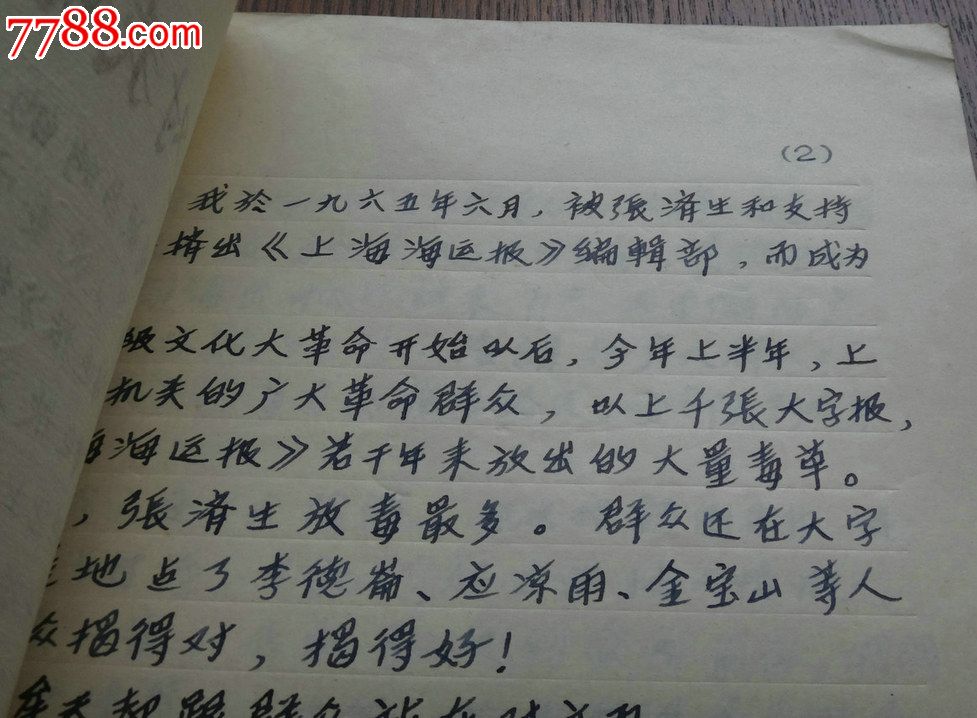 7788.com
(2)
我於一九六五年六月，被張济生和支持
擠出《上海海运报》编輯部，而成为
级文化大革命开始以后，今年上半年，上
机关的广大革命群众，以上千張大字报，
海海运报》若干年来放出的大量毒草。
，張济生放毒最多。群众还在大字
地点了李德崙、应凉雨、金宝山等人
众揭得对，揭得好！
群众站在